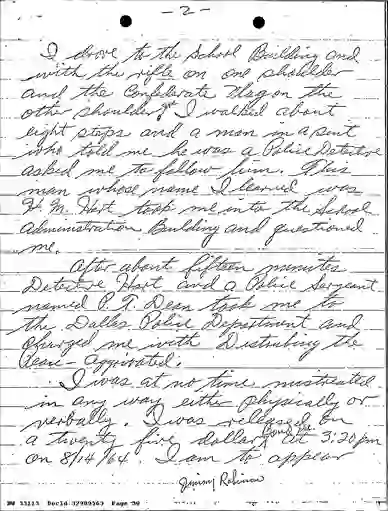 - 2 -
I drove to the School Building and
with the rifle on one shoulder
and the Confederate flag on the
other shoulder I walked about
eight steps and a man in a suit
who told me he was a Police Detective
asked me to follow him. This
man whose name I learned was
H. M. Hart took me into the School
Administration Building and questioned
me.
After about fifteen minutes
Detective Hart and a Police Sergeant
named P. T. Dean took me to
the Dallas Police Department and
charged me with Disturbing the
Peace - Aggrivated.
I was at no time mistreated
in any way either physically or
verbally. I was released on
a twenty five dollar bond at 3:20 pm
on 8/14/64. I am to appear
Jimmy Robinson
DocId:32989569 Page 30